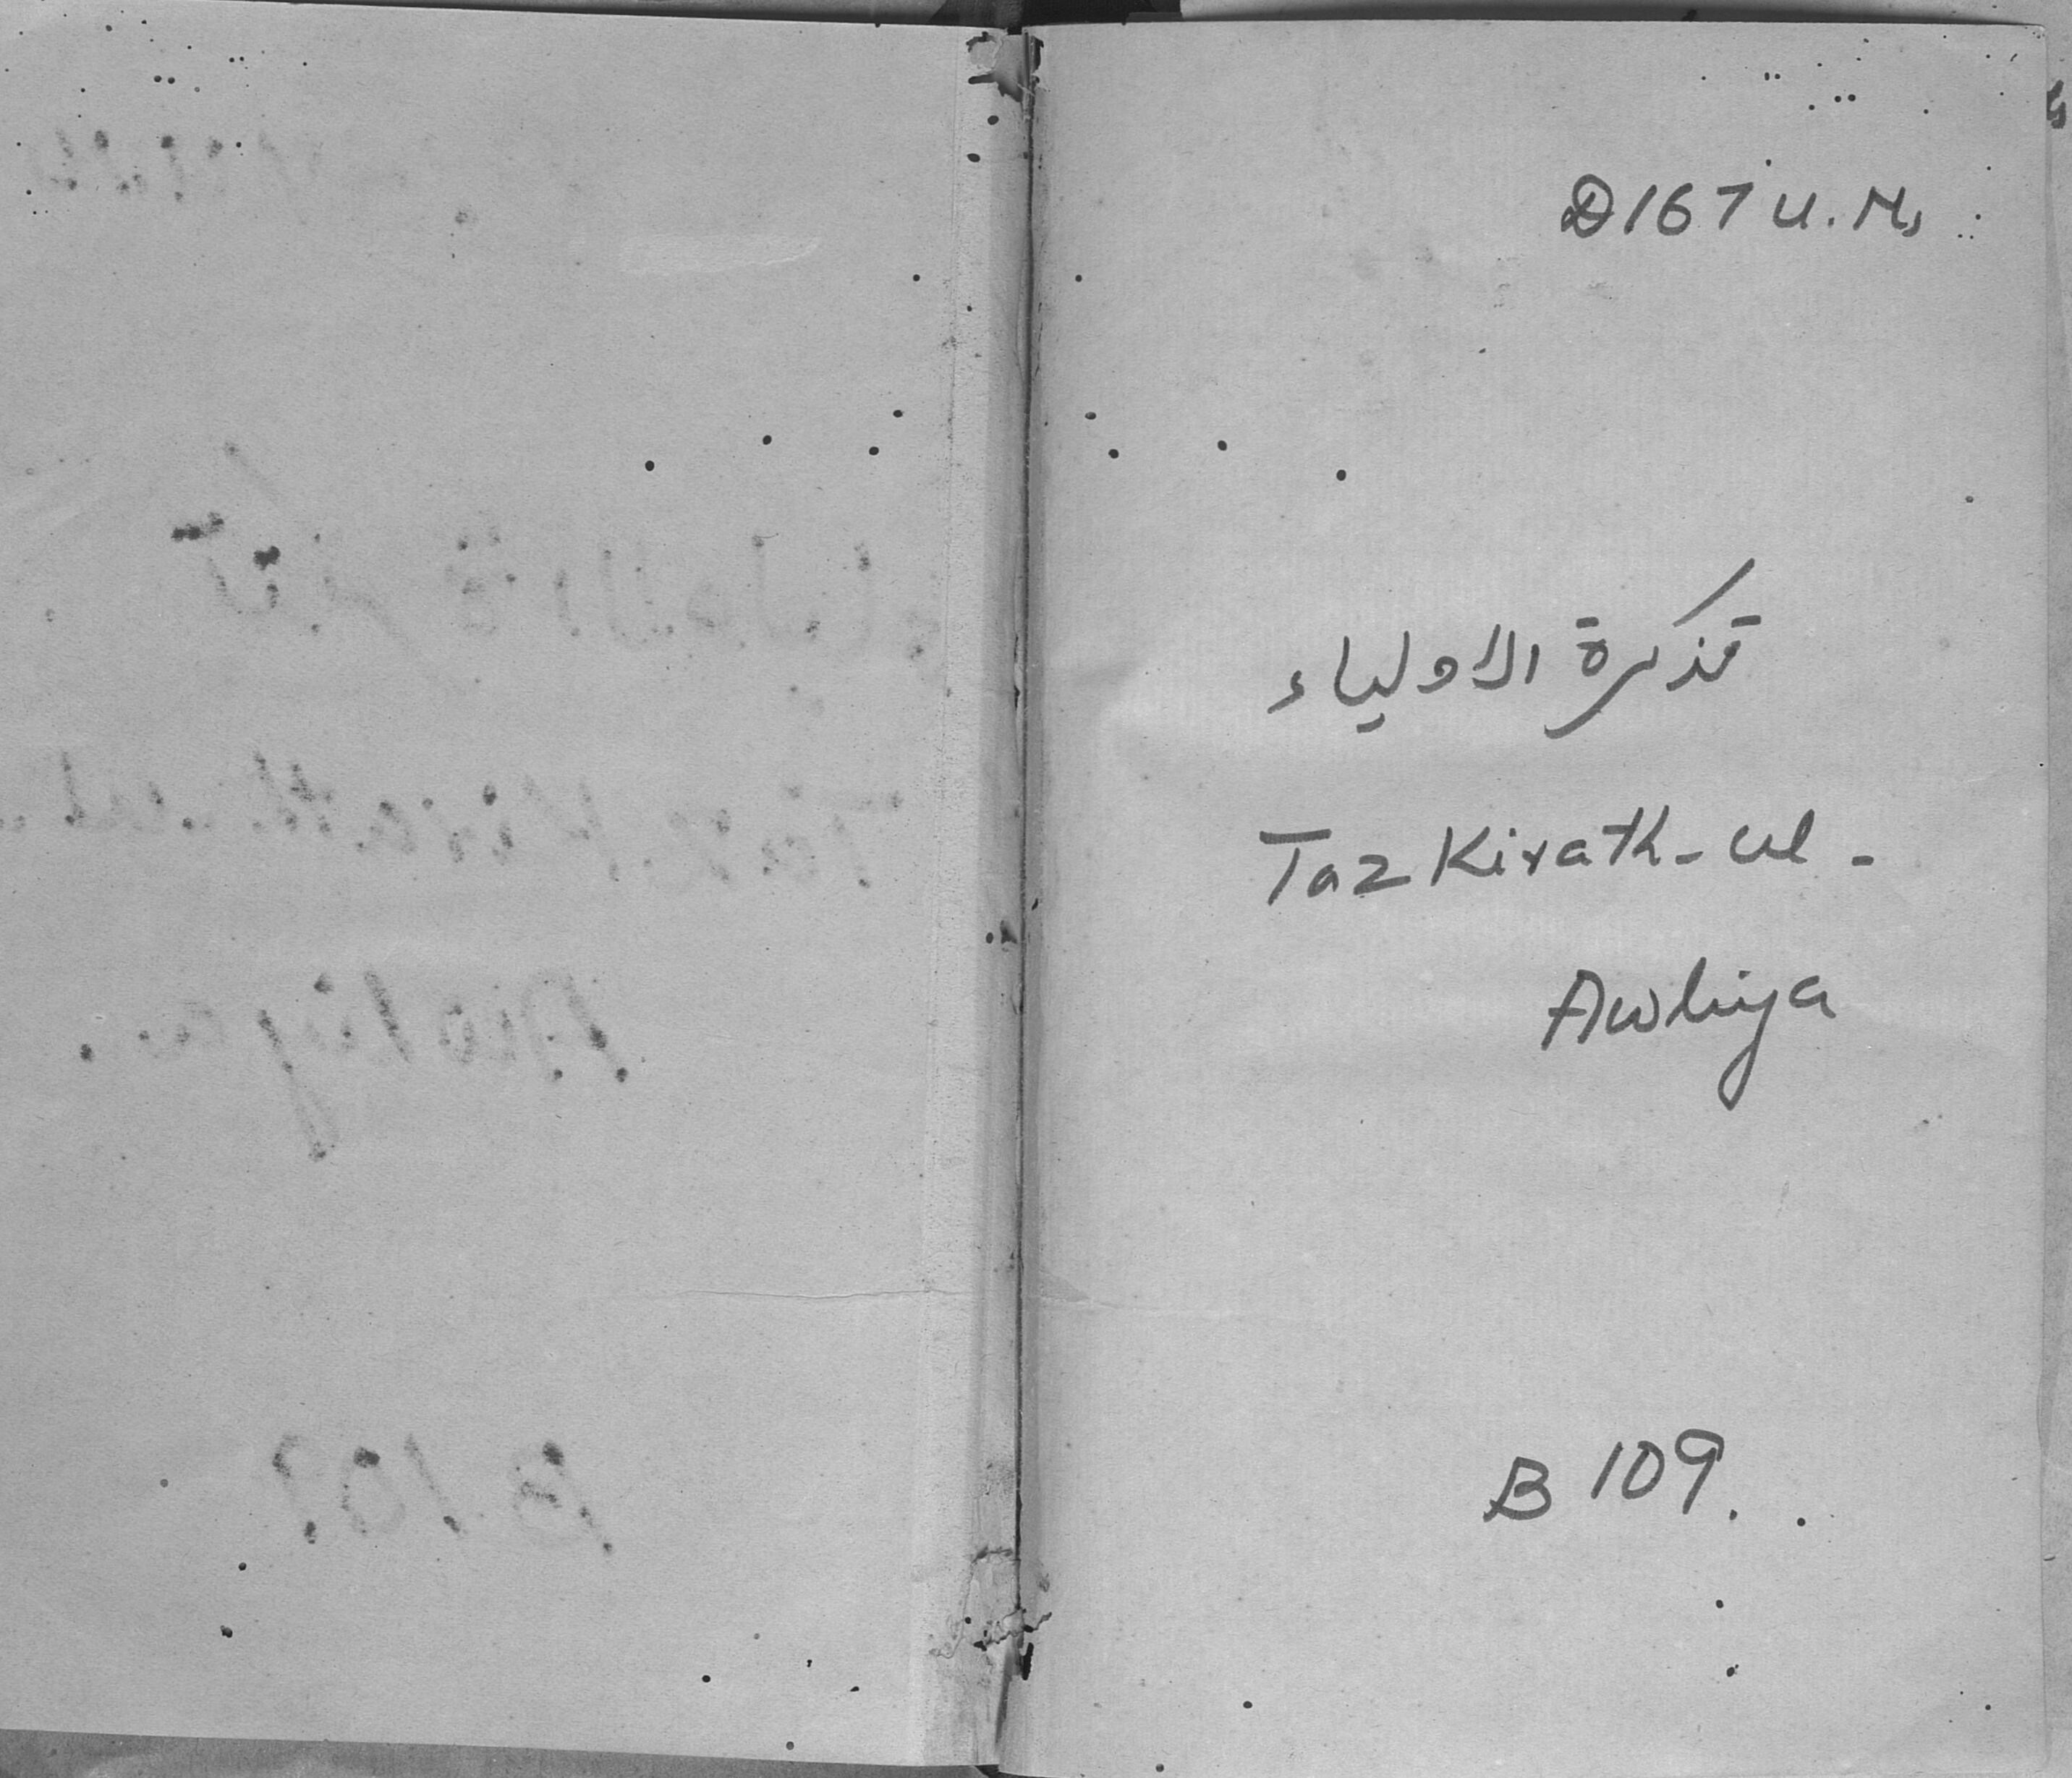 D167 U.M.
تذكرة الاولياء
Tazkirath-ul-
Awliya
B 109.